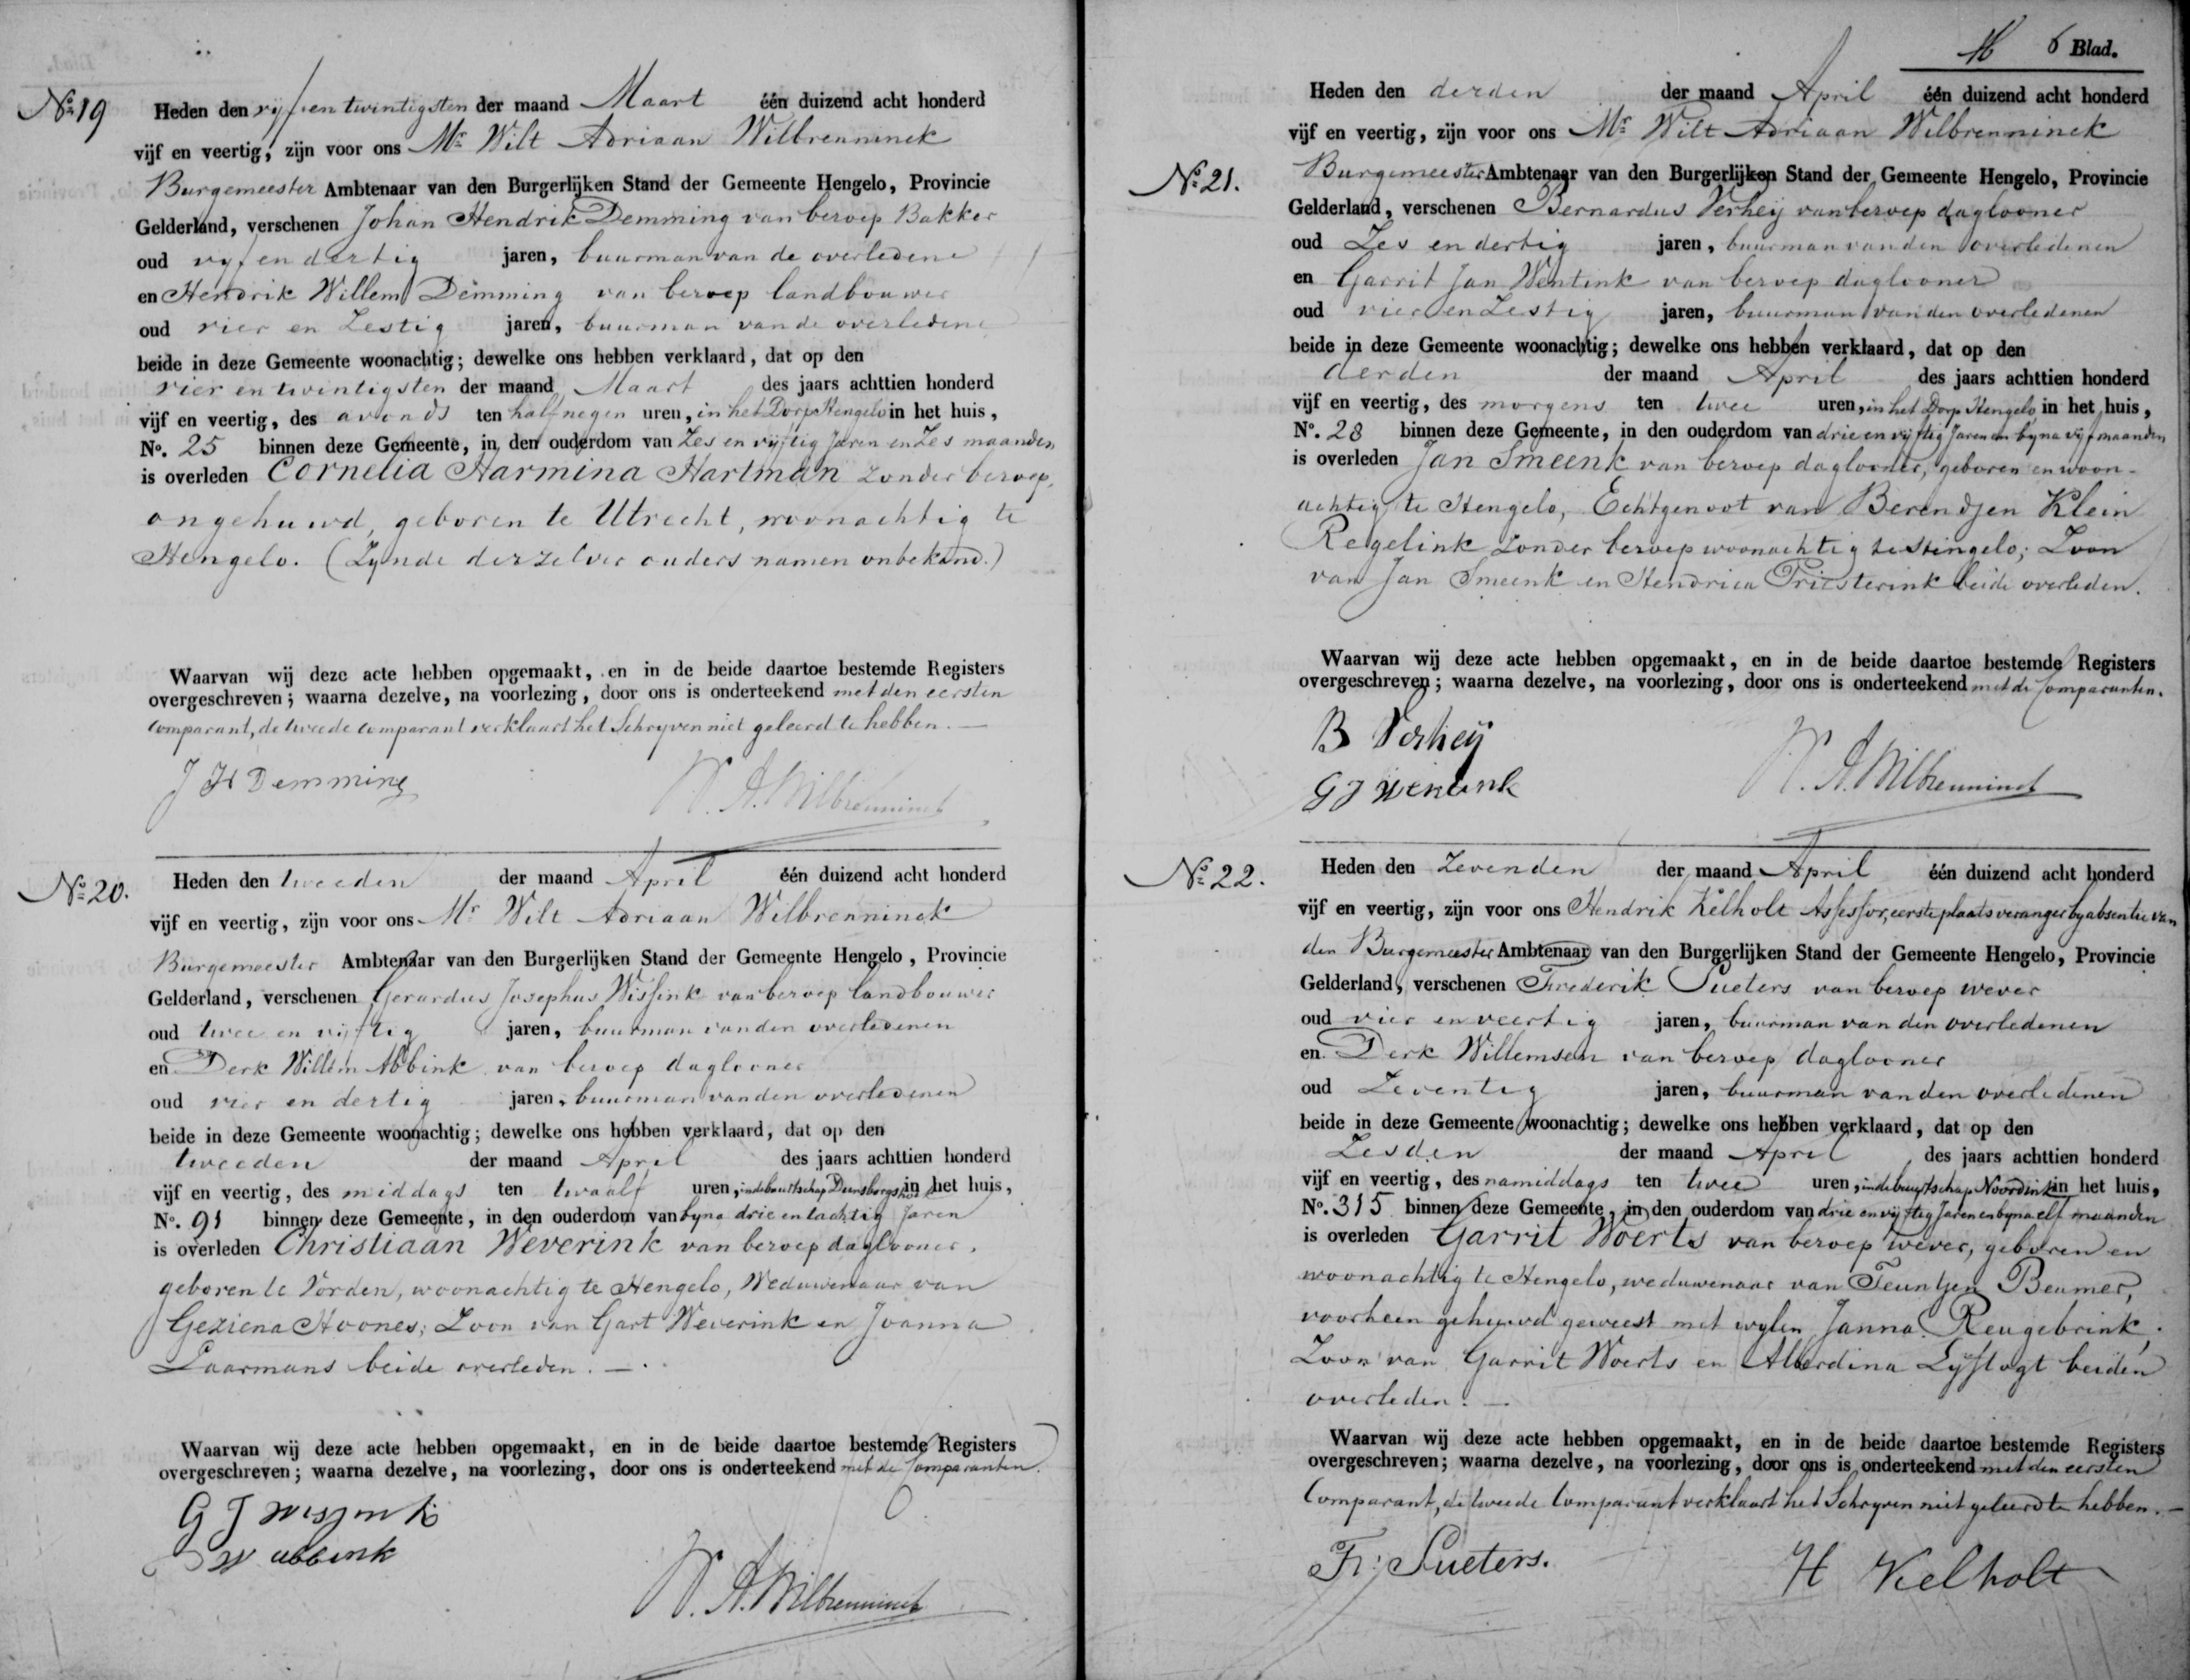 No. 19
Heden den vijf en twintigsten der maand Maart één duizend acht honderd
vijf en veertig, zijn voor ons Mr. Wilt Adriaan Wilbrenninck
Burgemeester Ambtenaar van den Burgerlijken Stand der Gemeente Hengelo, Provincie
Gelderland, verschenen Johan Hendrik Demming van beroep Bakker
oud vyf en dertig jaren, buurman van de overledene
en Hendrik Willem Demming van beroep landbouwer
oud vier en Zestig jaren, buurman van de overledene
beide in deze Gemeente woonachtig; dewelke ons hebben verklaard, dat op den
vier en twintigsten der maand Maart des jaars achttien honderd
vijf en veertig, des avonds ten half negen uren, in het Dorp Hengelo in het huis,
No. 25 binnen deze Gemeente, in den ouderdom van Zes en vyftig Jaren en Zes maanden
is overleden Cornelia Harmina Hartman zonder beroep,
ongehuwd, geboren te Utrecht, woonachtig te
Hengelo. (Zynde derzelver ouders namen onbekend.)
Waarvan wij deze acte hebben opgemaakt, en in de beide daartoe bestemde Registers
overgeschreven; waarna dezelve, na voorlezing, door ons is onderteekend met den eersten
Comparant, de tweede comparant verklaart het Schryven niet geleerd te hebben.
J H Demming
W. A. Wilbrenninck
No. 20.
Heden den tweeden der maand April één duizend acht honderd
vijf en veertig, zijn voor ons Mr Wilt Adriaan Wilbrenninck
Burgemeester Ambtenaar van den Burgerlijken Stand der Gemeente Hengelo, Provincie
Gelderland, verschenen Gerardus Josephus Wissink van beroep landbouwer
oud twee en vyftig jaren, buurman van den overledenen
en Derk Willem Abbink van beroep daglooner
oud vier en dertig jaren, buurman van den overledenen
beide in deze Gemeente woonachtig; dewelke ons hebben verklaard, dat op den
tweeden der maand April des jaars achttien honderd
vijf en veertig, des middags ten twaalf uren, in de buurtschap in het huis,
No. 91 binnen deze Gemeente, in den ouderdom van byna drie en tachtig Jaren
is overleden Christiaan Weverink van beroep daglooner,
geboren te Vorden, woonachtig te Hengelo, Weduwenaar van
Geziena Hoones; Zoon van Gart Weverink en Joanna
Laarmans beide overleden.
Waarvan wij deze acte hebben opgemaakt, en in de beide daartoe bestemde Registers
overgeschreven; waarna dezelve, na voorlezing, door ons is onderteekend met de Comparanten.
G J Wissink
D W abbink
W. A. Wilbrenninck
6 Blad.
No. 21.
Heden den derden der maand April één duizend acht honderd
vijf en veertig, zijn voor ons Mr. Wilt Adriaan Wilbrenninck
Burgemeester Ambtenaar van den Burgerlijken Stand der Gemeente Hengelo, Provincie
Gelderland, verschenen Bernardus Verheij van beroep daglooner
oud Zes en dertig jaren, buurman van den overledenen
en Garrit Jan Wentink van beroep daglooner
oud vier en Zestig jaren, buurman van den overledenen
beide in deze Gemeente woonachtig; dewelke ons hebben verklaard, dat op den
derden der maand April des jaars achttien honderd
vijf en veertig, des morgens ten twee uren, in het Dorp Hengelo, in het huis,
No. 28 binnen deze Gemeente, in den ouderdom van drie en vyftig Jaren en byna vyf maanden
is overleden Jan Smeenk van beroep daglooner, geboren en woon-
achtig te Hengelo, Echtgenoot van Berendjen Klein
Regelink zonder beroep woonachtig te Hengelo; Zoon
van Jan Smeenk en Hendrica Priesterink beide overleden.
Waarvan wij deze acte hebben opgemaakt, en in de beide daartoe bestemde Registers
overgeschreven; waarna dezelve, na voorlezing, door ons is onderteekend met de Comparanten.
B Verheij
G J Wentink
W. A. Wilbrenninck
No. 22.
Heden den Zevenden der maand April één duizend acht honderd
vijf en veertig, zijn voor ons Hendrik Kelholt Assessor, eerste plaatsveranger by absentie van
den Burgemeester Ambtenaar van den Burgerlijken Stand der Gemeente Hengelo, Provincie
Gelderland, verschenen Frederik Sueters van beroep wever
oud vier en veertig jaren, buurman van den overledenen
en Derk Willemsen van beroep daglooner
oud Zeventig jaren, buurman van den overledenen
beide in deze Gemeente woonachtig; dewelke ons hebben verklaard, dat op den
Zesden der maand April des jaars achttien honderd
vijf en veertig, des namiddags ten twee uren, in de buurtschap Noordink in het huis,
No. 315 binnen deze Gemeente, in den ouderdom van drie en vyftig Jaren en byna elf maanden
is overleden Garrit Woerts van beroep wever, geboren en
woonachtig te Hengelo, weduwenaar van Teuntjen Beumer,
voorheen gehuwd geweest met wylen Janna Reugebrink,
Zoon van Garrit Woerts en Alberdina Lyftogt beiden
overleden.
Waarvan wij deze acte hebben opgemaakt, en in de beide daartoe bestemde Registers
overgeschreven; waarna dezelve, na voorlezing, door ons is onderteekend met den eersten
Comparant, de tweede Comparant verklaart het Schryven niet geleerd te hebben.
Fr: Sueters.
H Kelholt